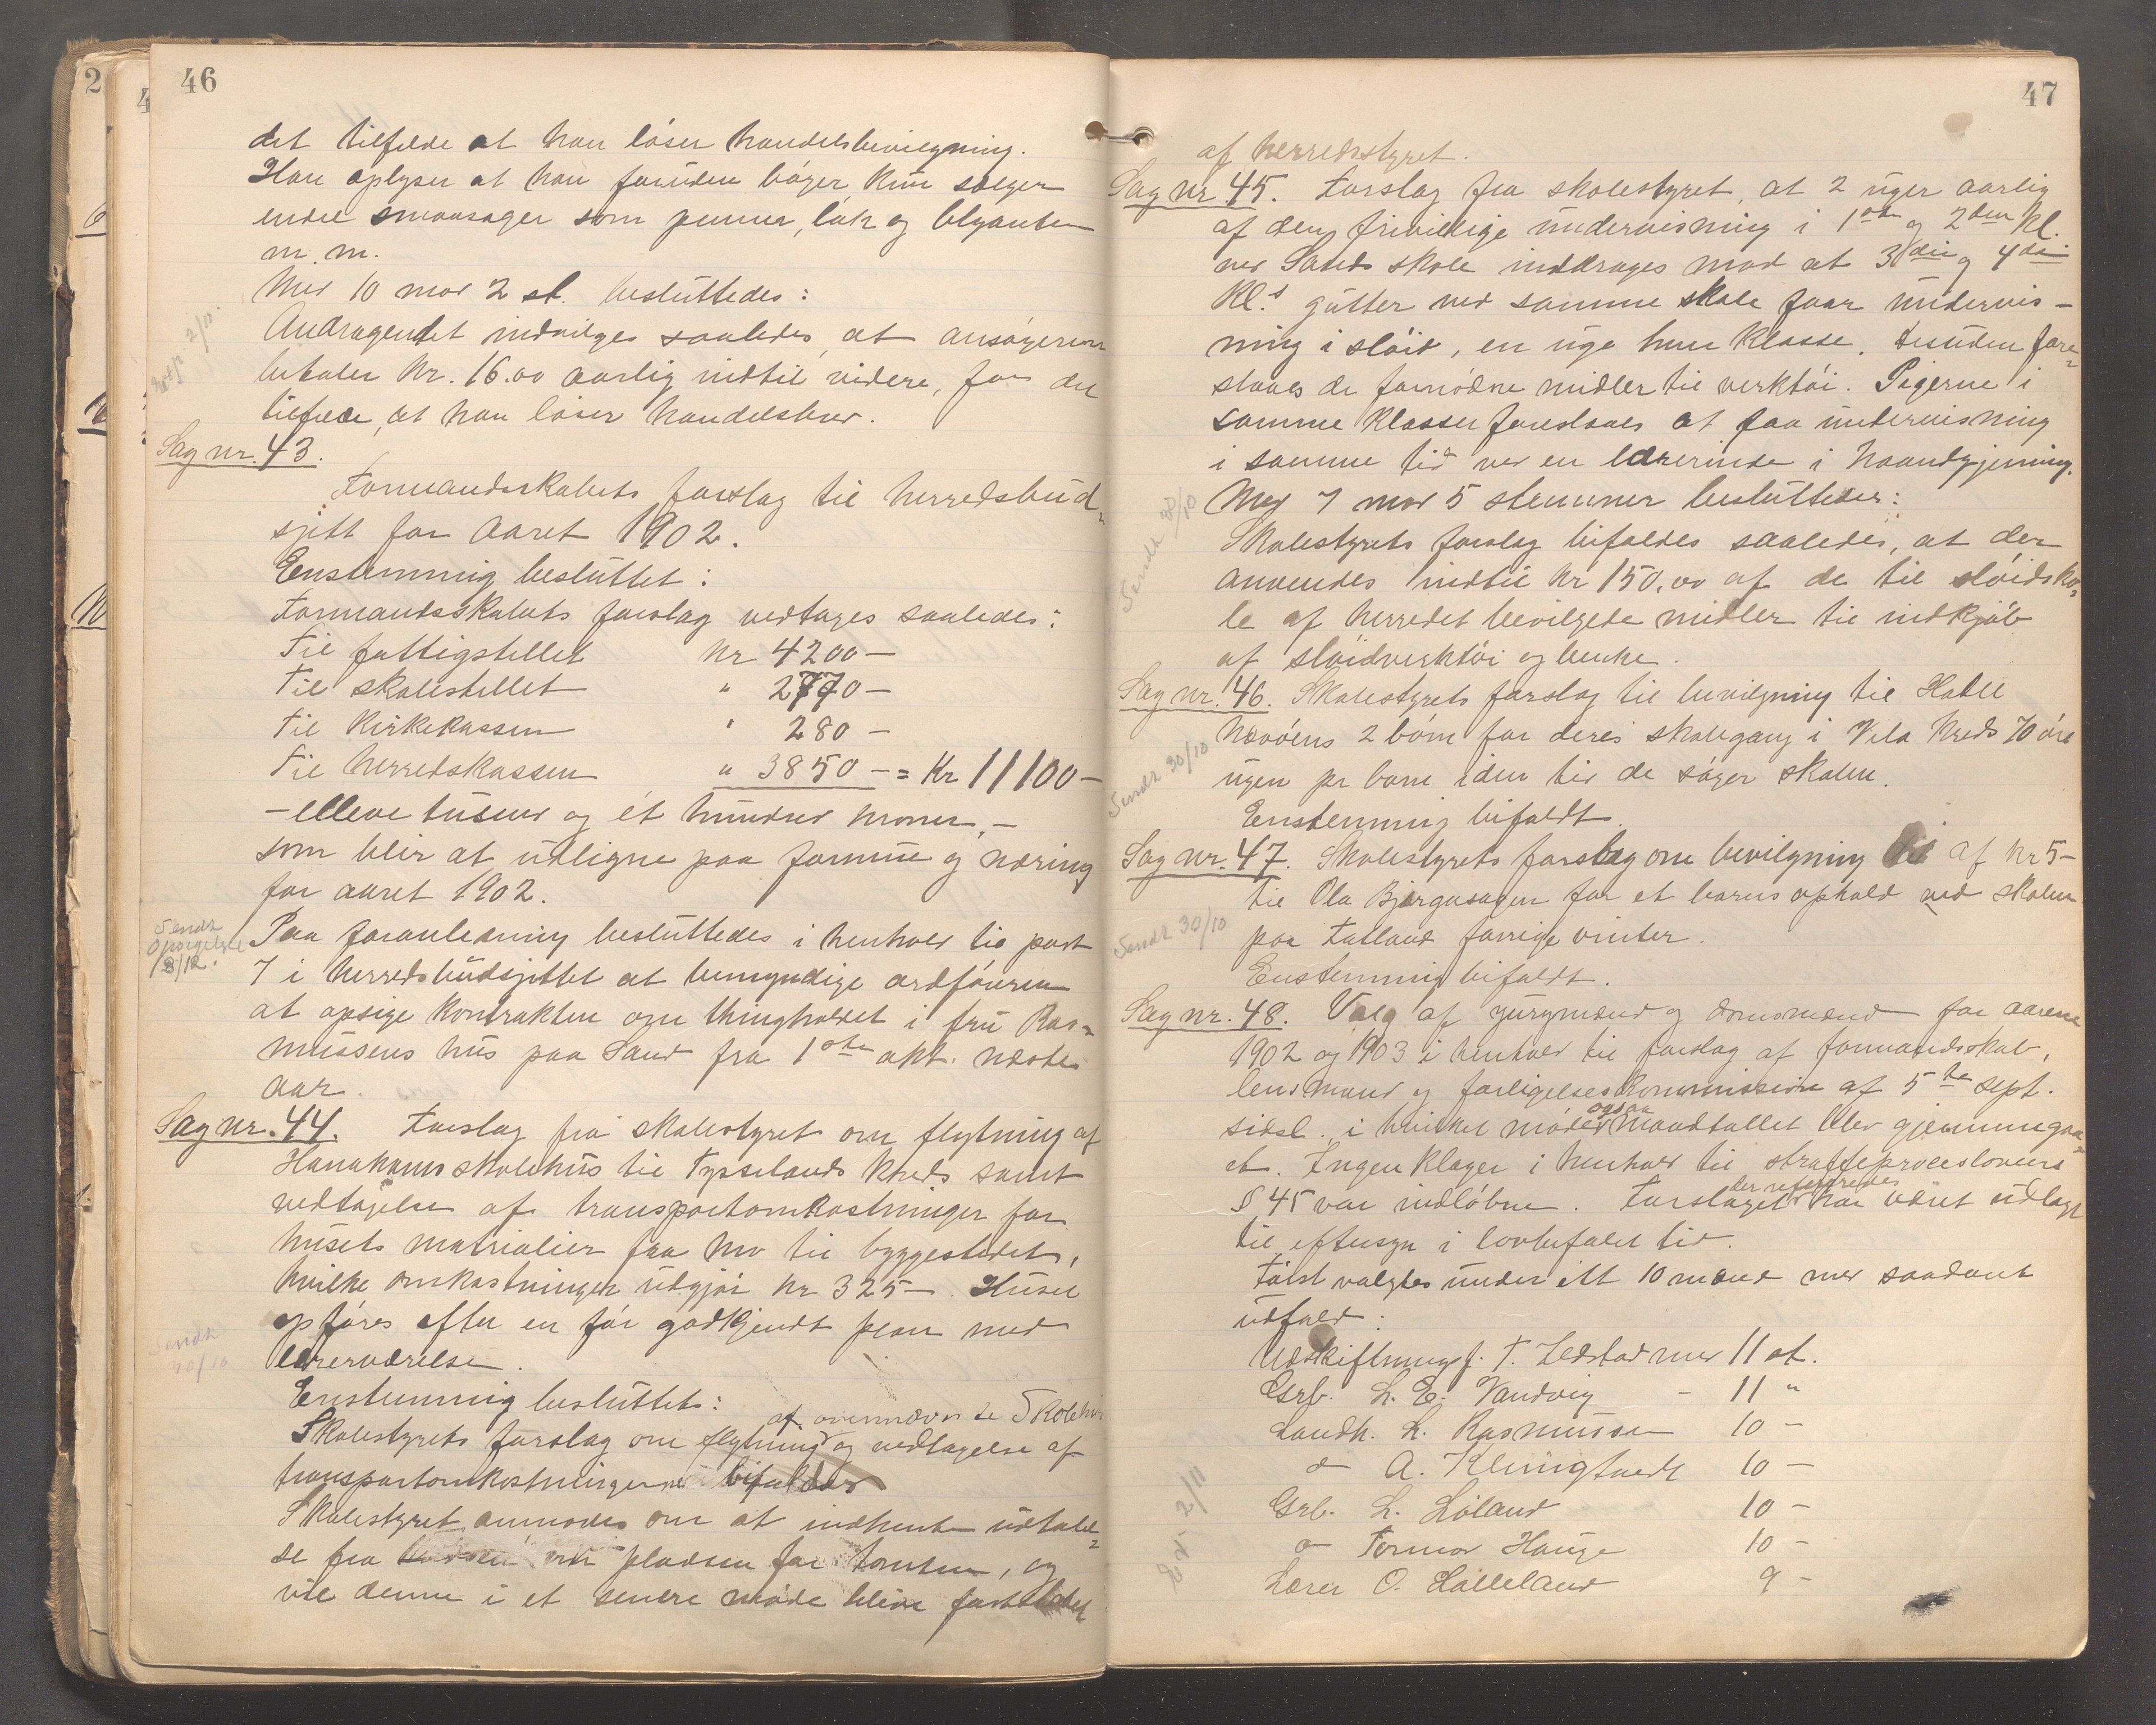 46
det tilfælde at han løser handelsbevilgning.
Han oplyser at han foruden bøger kun sælger
endel smaasager som penner, læk og blyanter
m. m.
Med 10 mod 2 st. besluttedes:
Andragendet indvilges saaledes, at ansøgeren
betaler kr. 16.00 aarlig indtil videre, for det
tilfælde, at han løser handelsbrev.
2/11
Sag nr. 43.
Formandskabets forslag til herredsbud-
sjett for aaret 1902.
Enstemmig besluttet:
Formandsskabets forslag vedtages saaledes:
Til fattigstellet kr 4200 —
Til skolestellet " 2770 —
Til Kirkekassen " 280 —
Til herredskassen " 3850 — = Kr 11100 —
— elleve tusend og et hundred kroner, —
som blir at udligne paa formue og næring
for aaret 1902.
Sendt
Opsigelse
8/12.
Paa foranledning besluttedes i henhold til post
7 i herredsbudsjettet at bemyndige ordføreren
at opsige kontrakten om thingholdet i fru Ras-
mussens hus paa Sand fra 1ste okt. næste
aar.
Sag nr. 44. Forslag fra skolestyret om flytning af
Hanakams skolehus til Tysselands kreds samt
vedtagelse af transportomkostninger for
husets matrialier fra Mo til byggestedet,
hvilke omkostninger udgjør kr 325 —. Huset
opføres efter en før godkjendt plan med
lærerværelse.
Sendt
30/10
Enstemmig besluttet:
Skolestyrets forslag om flytning af ovennævnte Skolehus og vedtagelse af
transportomkostningerne bifaldes
Skolestyret anmodes om at indhente udtalel-
se fra om pladsen for tomten, og
vil denne i et senere møde blive fastslaaet
47
af herredsstyret.
Sag nr. 45. Forslag fra skolestyret, at 2 uger aarlig
af den frivillige undervisning i 1ste og 2den Kl.
ved Sands skole inddrages mod at 3die og 4de
Kl.s gutter ved samme skole faar undervis-
ning i sløid, en uge hver Klasse. Desuden fore-
slaaes de fornødne midler til verktøi. Pigerne i
samme klasser foreslaaes at faa undervisning
i samme tid ved en lærerinde i haandgjerning.
Med 7 mod 5 stemmer besluttedes:
Sendt 28/10
Skolestyrets forslag bifaldes saaledes, at der
anvendes indtil kr 150.00 af de til sløidsko-
le af herredet bevilgede midler til indkjøb
af sløidverktøi og benke.
Sag nr. 46. Skolestyrets forslag til bevilgning til Halle
Nævøens 2 børn for deres skolegang i Vela Kreds 70 øre
ugen pr barn i den tid de søger skolen.
Sendt 30/10
Enstemmig bifaldt.
Sag nr. 47. Skolestyrets forslag om bevilgning af kr 5 —
til Ola Bjørgusagen for et barns ophold ved skolen
paa Fatland forrige vinter.
Sendt 30/10
Enstemmig bifaldt.
Sag nr. 48. Valg af jurymænd og domsmænd for aarene
1902 og 1903 i henhold til forslag af formandsskab,
lensmand og forligelseskommission af 5te sept.
sidstl. i hvilket møde ogsaa mandtallet blev gjennemgaa-
et. Ingen klager i henhold til straffeproceslovens
§ 45 var indløbne. Forslaget der refereredes har været udlagt
til eftersyn i lovbefalet tid.
Først valgtes under ett 10 mænd med saadant
udfald:
Udskiftningsf. T. Ledstad med 11 st.
Grb. L. E. Vandvig — 11 "
Landh. L. Rasmussen 10 —
d A. Klingtvedt 10 —
Grb. L. Løland 10 —
d Tormod Hauge 10 —
Lærer O. Halleland 9 —
2/11